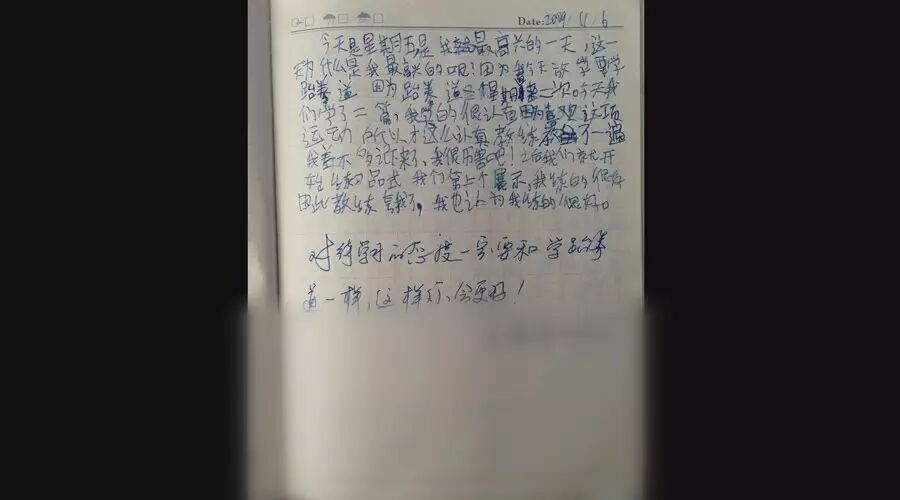 Date: 2009 11 6
今天是星期五是我最高兴的一天,这一
天为什么是我最高兴的呢!因为今天放学要学
跆拳道,因为跆拳道一个星期二次。今天我
们学了二篇,我学的很认真因为喜欢这项
运动所以才这么认真教练教了一遍
我差不多记下来了,我很厉害吧!之后我们就开
始练习品式我们第上个展示,我练的很好
因此教练夸我了,我也认为我练的很好。
对待学习的态度一定要和学跆拳
道一样,这样才会更好!